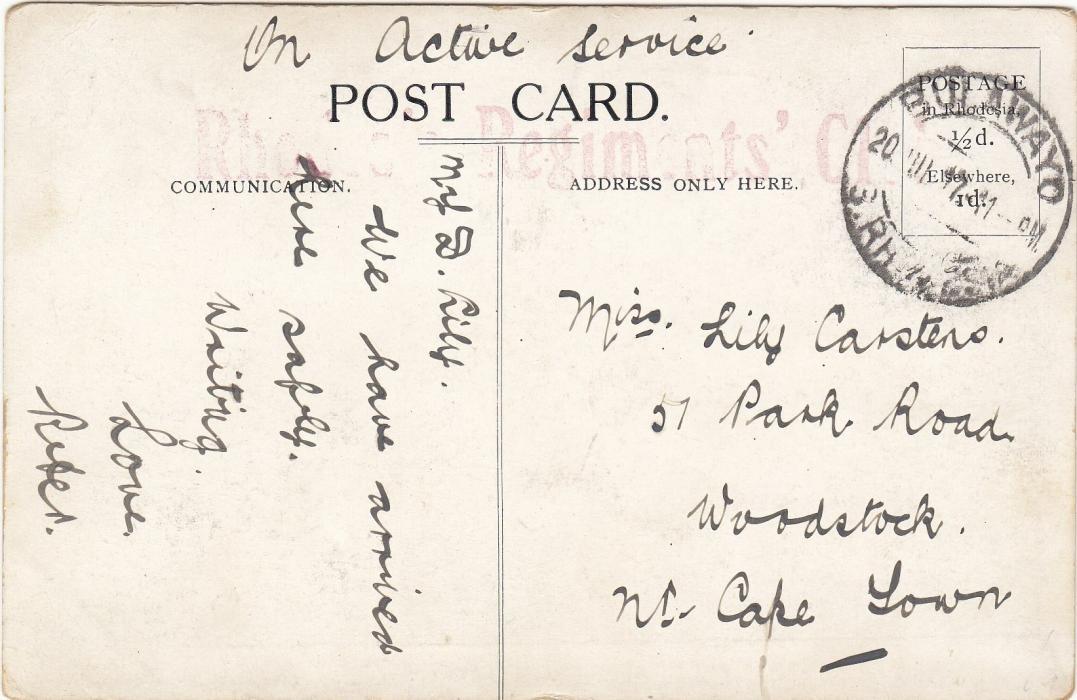 On Active Service
POST CARD.
Regiments'
COMMUNICATION.
ADDRESS ONLY HERE.
POSTAGE
in Rhodesia,
½d.
Elsewhere,
1d.
BULAWAYO
20
My D. Lily.
We have arrived
here safely.
Writing.
Love.
Peter.
Miss. Lily Carstens.
51 Park Road.
Woodstock.
Nr Cape Town